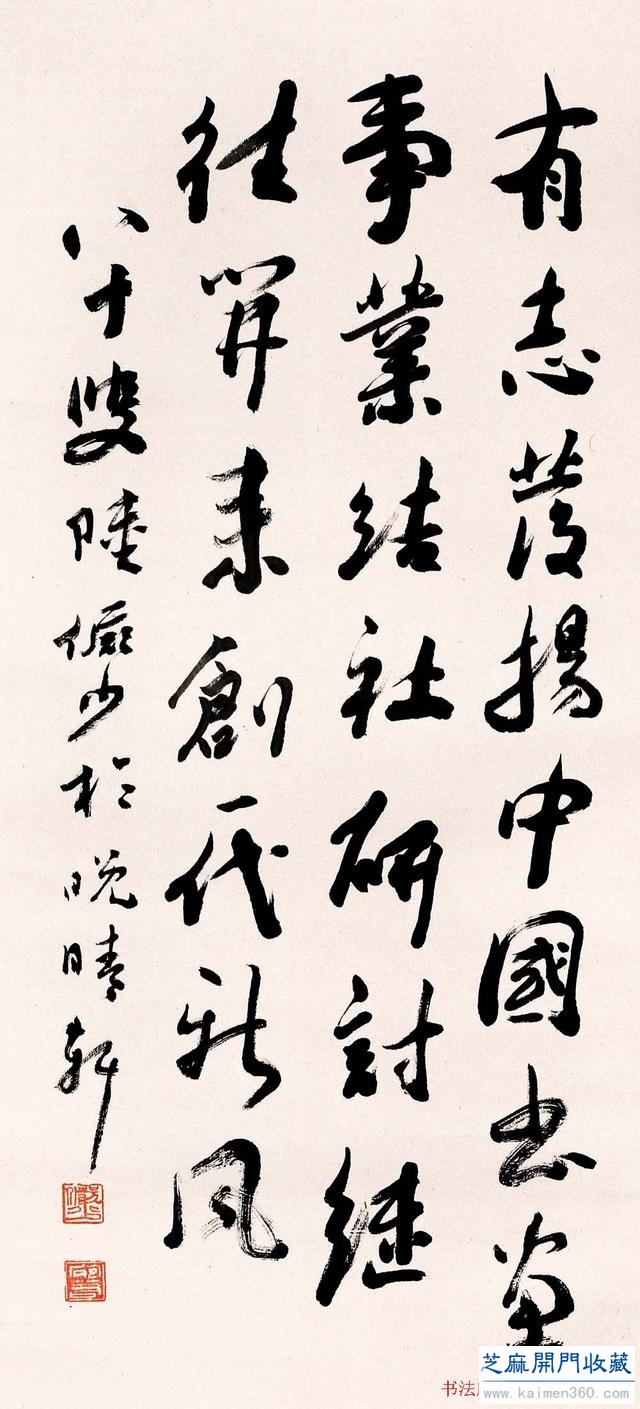 有志發揚中國书画
事業結社研討继
往開来創一代新風
八十叟陸儼少於晚晴軒
芝麻開門收藏
www.kaimen360.com
书法